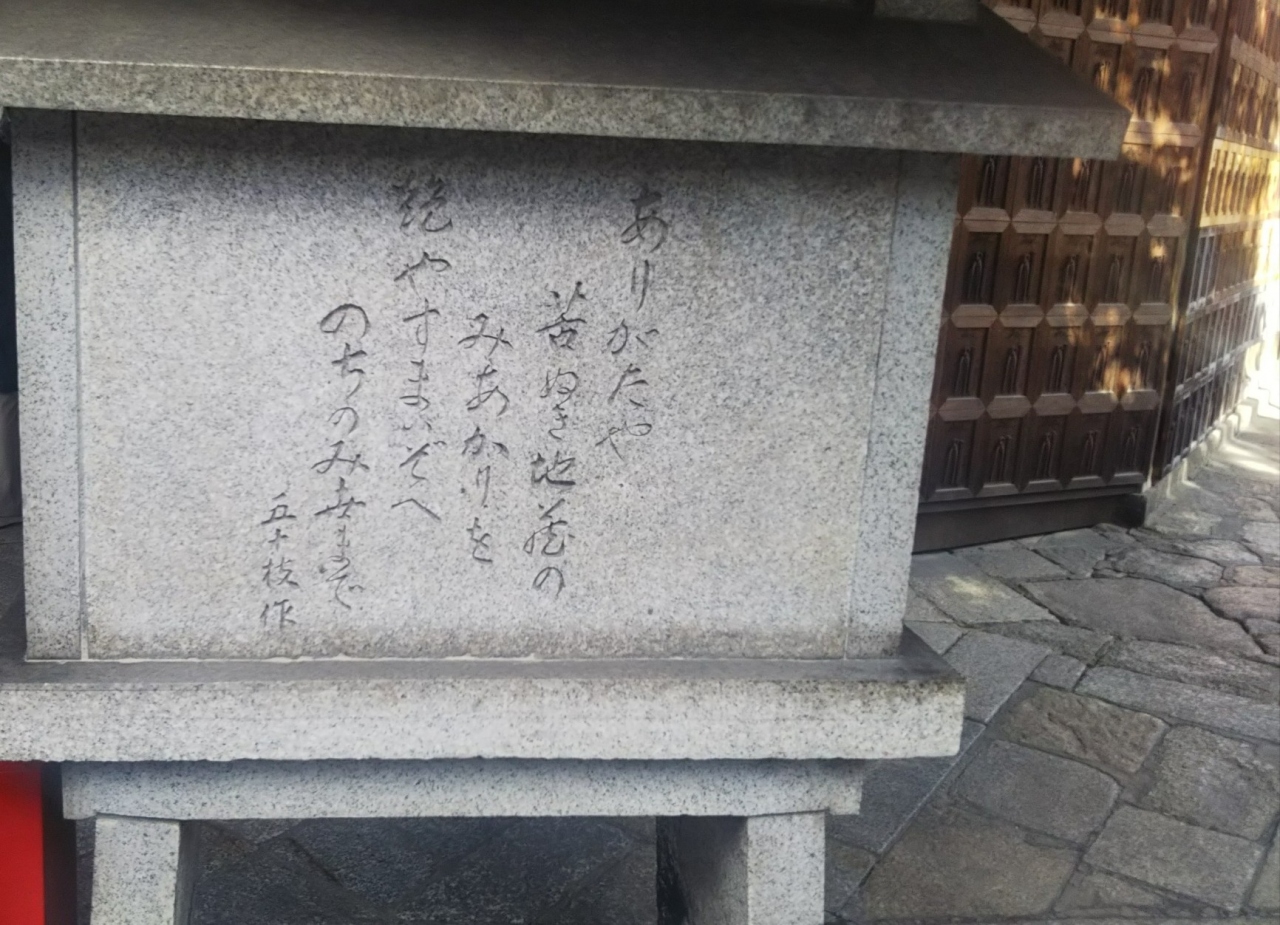 ありがたや
苦ぬき地蔵の
みあかりを
絶やすまいぞへ
のちのみ世まで
五十枝作